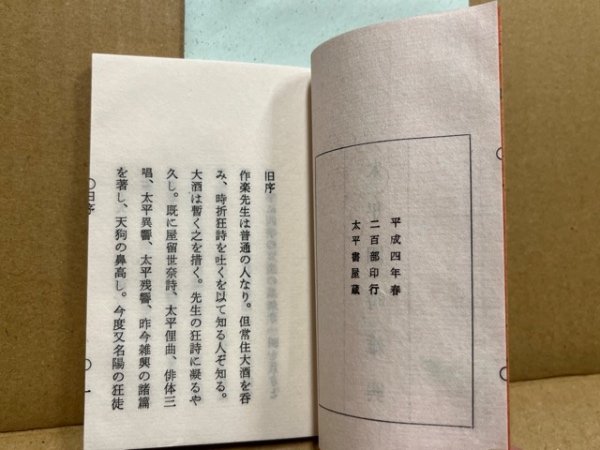 平成四年春
二百部印行
太平書屋蔵
旧序
作楽先生は普通の人なり。但常住大酒を呑
み、時折狂詩を吐くを以て知る人ぞ知る。
大酒は暫く之を措く。先生の狂詩に凝るや
久し。既に屋留世奈詩、太平俚曲、俳体三
唱、太平異響、太平残響、昨今雑興の諸篇
を著し、天狗の鼻高し。今度又名陽の狂徒
〇旧序
〇一